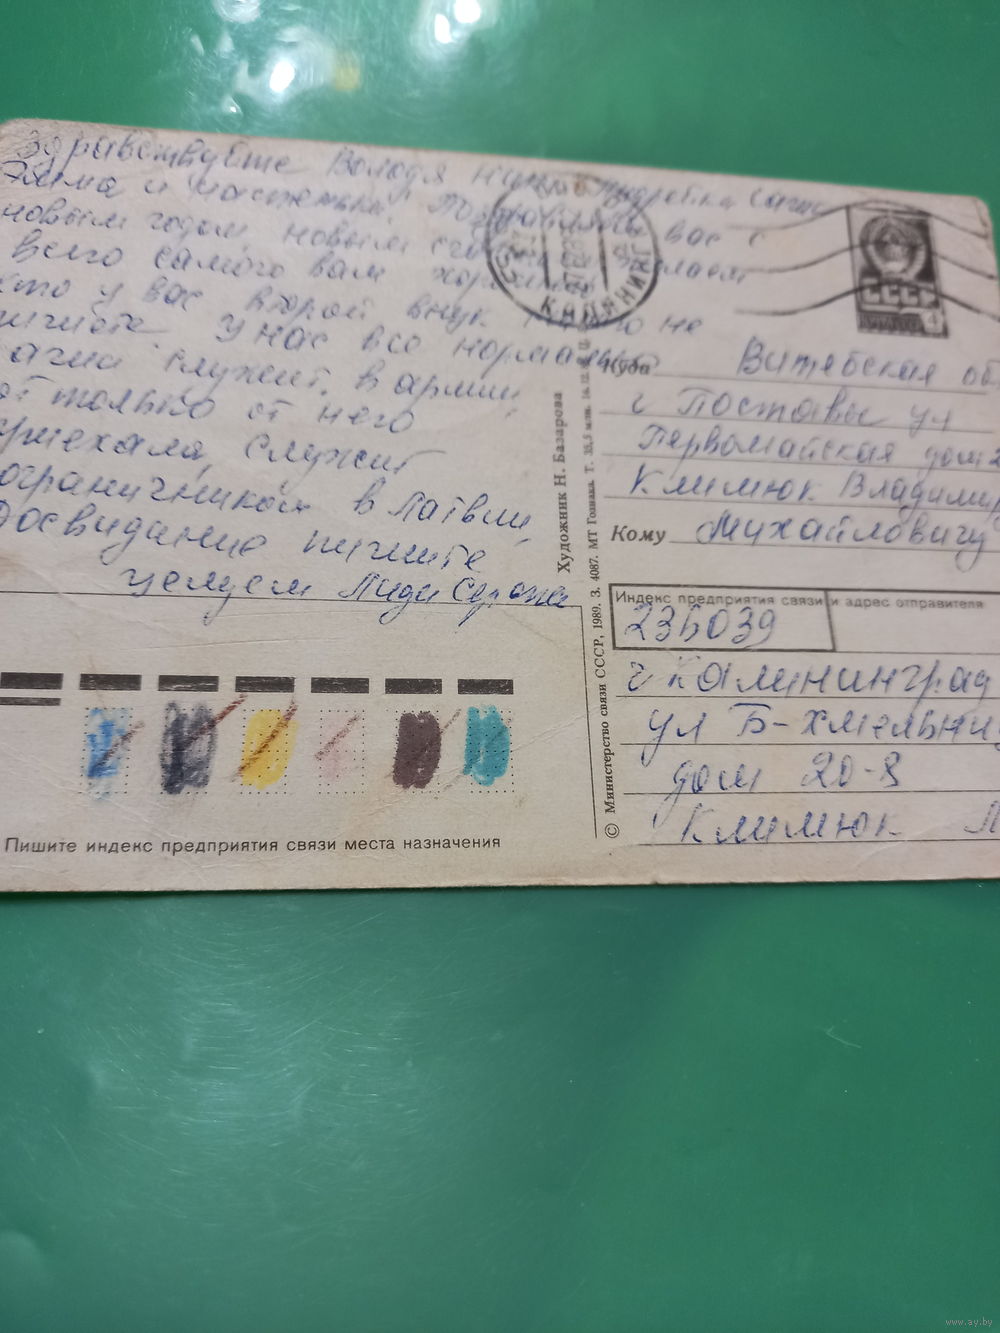 Здравствуйте Володя Саши
Эмма и Настенька Поздравляем вас с
новым годом новым желаем
всего самого вам
кто у вас второй внук не
пишите У нас все нормально
служит в армии
от только от него
приехала, служит
ограничником в Латвии,
Досвидание пишите
целуем Лида Сережа
КАЛИНИНГРАД
СССР
Куда Витебская об
г Поставы ул
Первомайская дом 2
Климюк Владимир
Кому Михайловичу
Индекс предприятия связи и адрес отправителя
236039
г Калининград
ул Б-хмельниц
дом 20-8
Климюк Л
Художник Н. Базарова
© Министерство связи СССР, 1989. З. 4087. МТ Гознака. Т. 35,5 млн.
Пишите индекс предприятия связи места назначения
www.ay.by